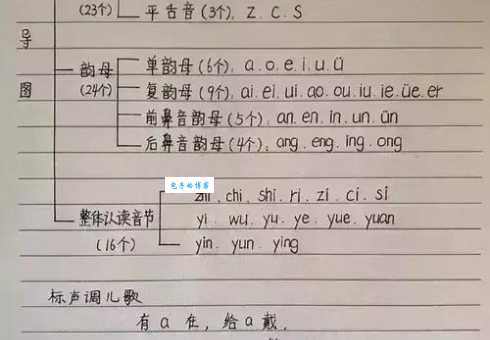 (23个) 平舌音(3个). z. c. s
导
韵母 单韵母(6个). a. o. e. i. u. ü
图 (24个) 复韵母(9个). ai. ei. ui. ao. ou. iu. ie. üe. er
前鼻音韵母(5个). an. en. in. un. ün
后鼻音韵母(4个). ang. eng. ing. ong
chi. shi. ri. zi. ci. si
整体认读音节 yi. wu. yu. ye. yue. yuan
(16个) yin. yun. ying
标声调儿歌
有a在,给a戴,